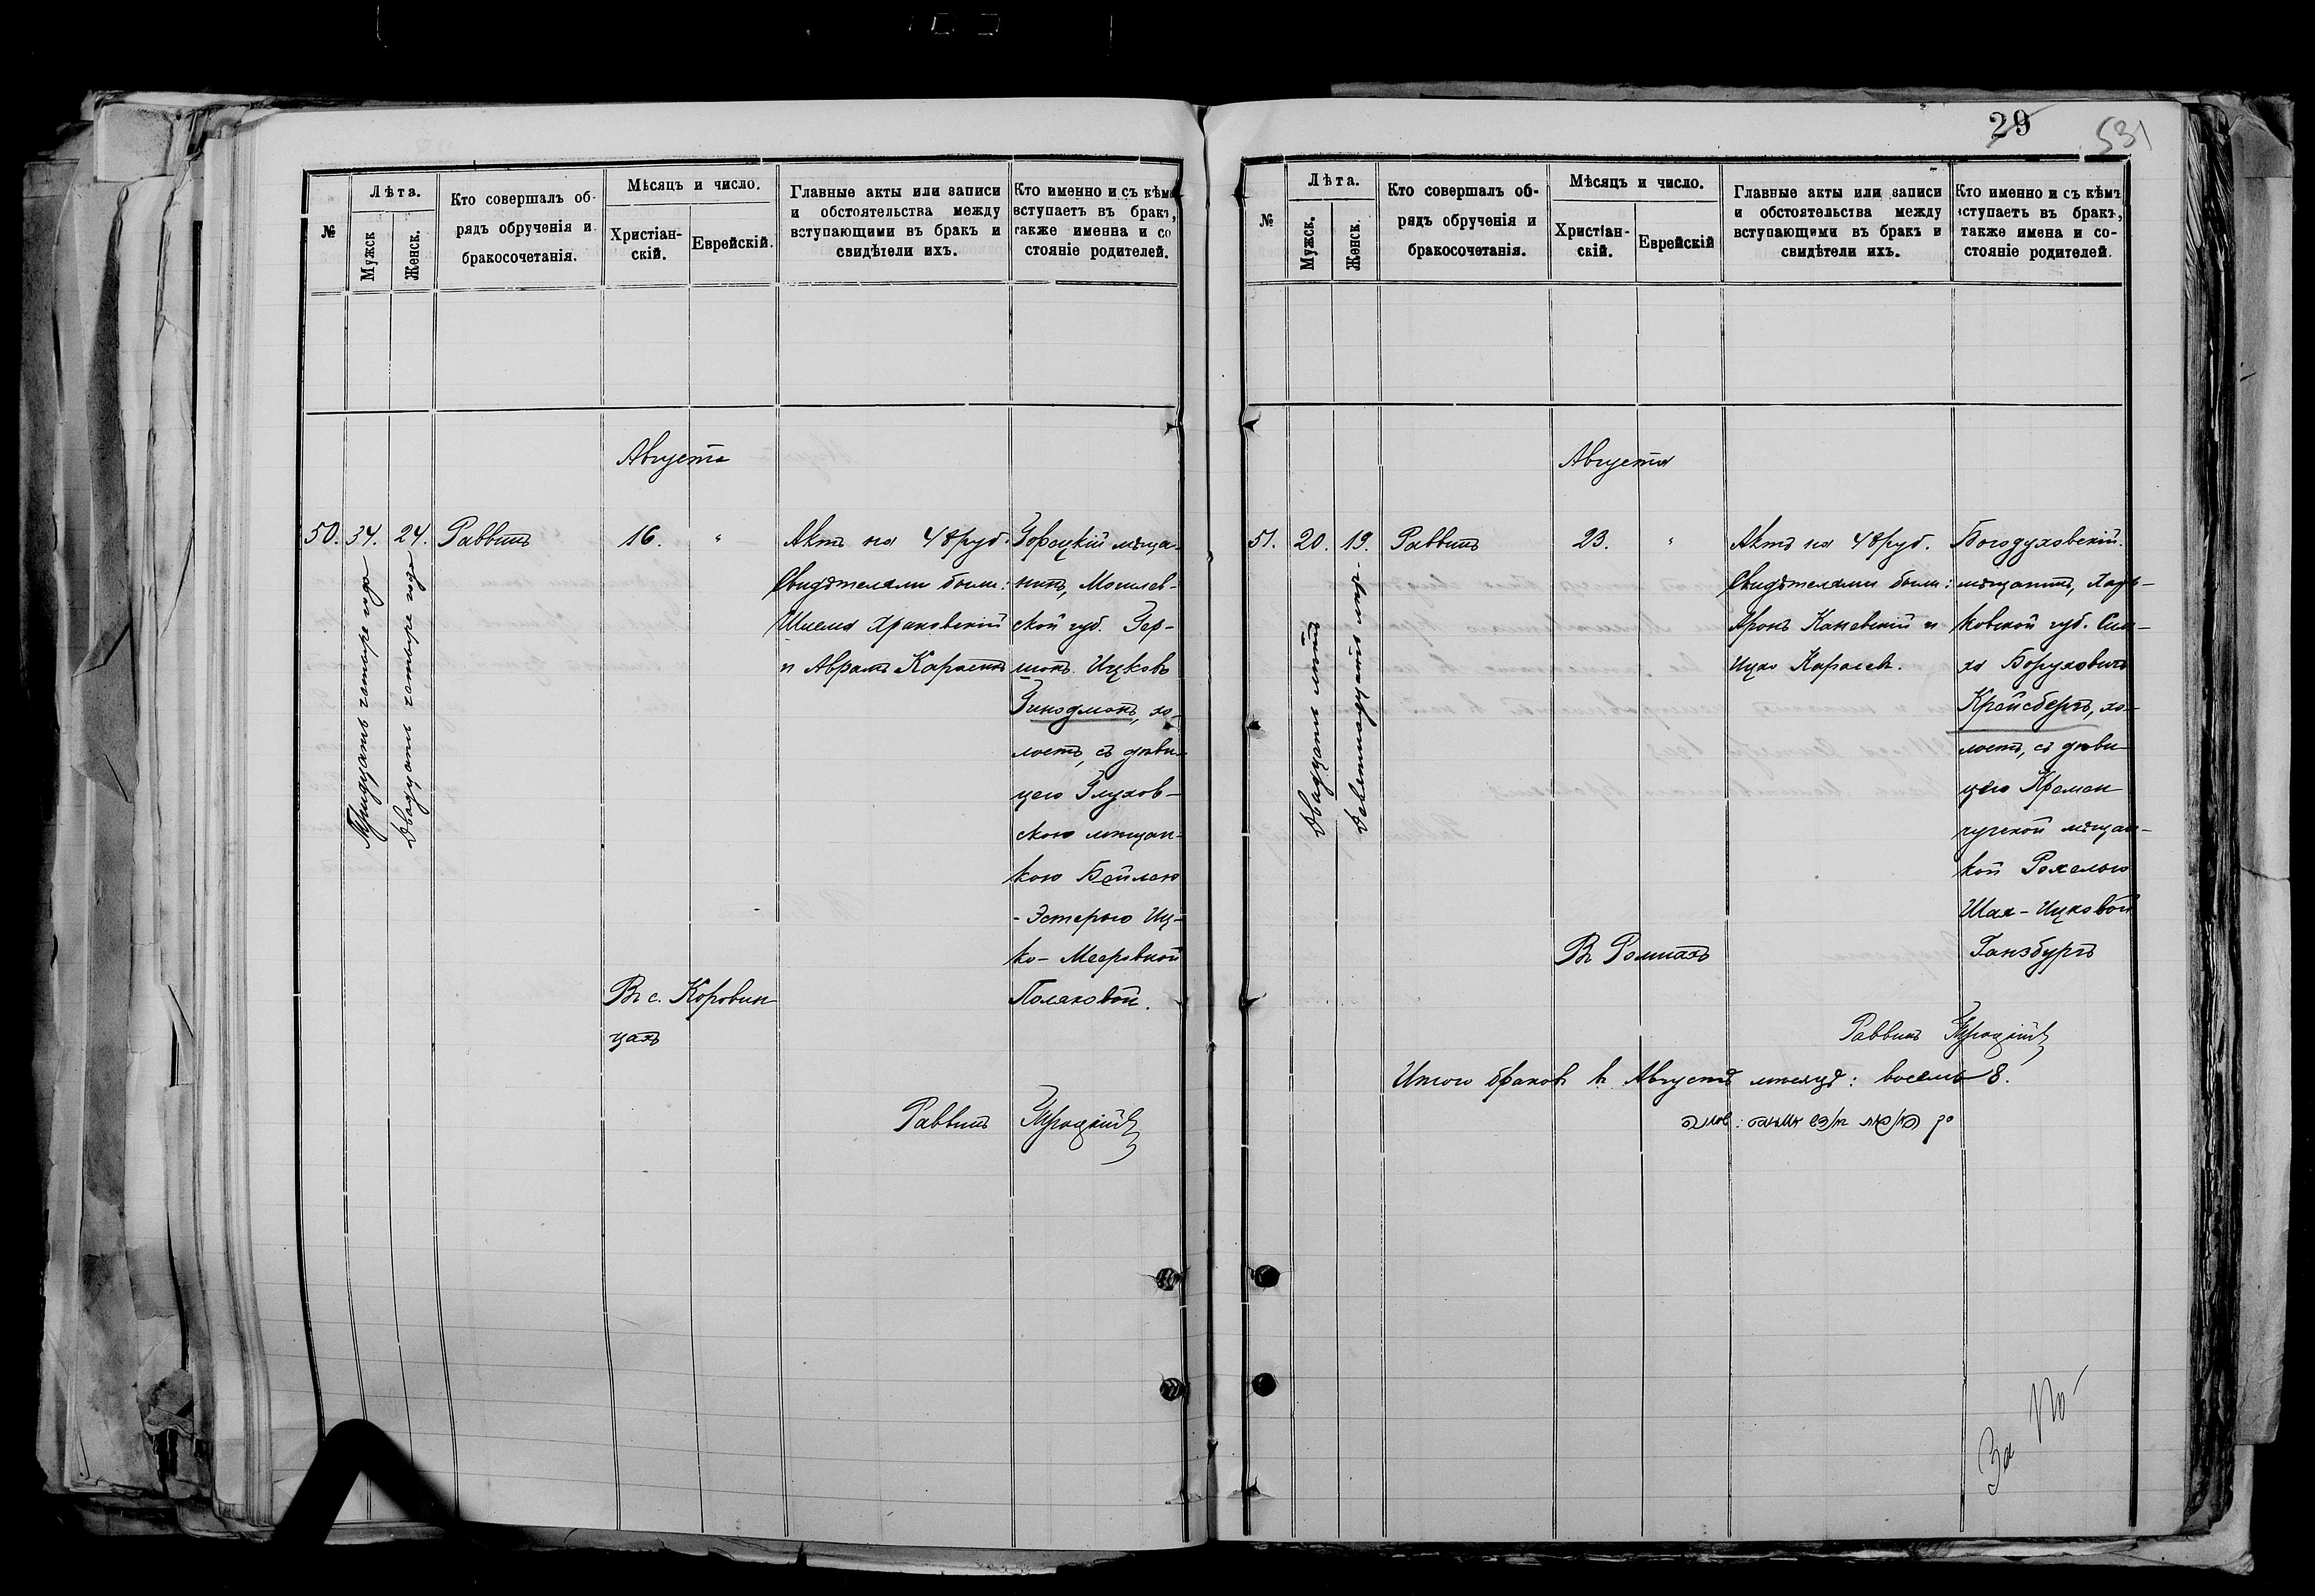 29
531
№
Лѣта.
Мужск
Женск.
Кто совершалъ об-
рядъ обрученія и
бракосочетанія.
Мѣсяцъ и число.
Христіан-
скій.
Еврейскій.
Главные акты или записи
и обстоятельства между
вступающими въ бракъ и
свидѣтели ихъ.
Кто именно и съ кѣмъ
вступаетъ въ бракъ,
также имена и со
стояніе родителей.
Августа
50.
34.
Тридцать четыре года
24.
Двадцать четыре года
Раввинъ
16.
"
Актъ на 48 руб.
Свидѣтелями были:
Шлема Храковскій
и Аврамъ Карасикъ
Горецкій мѣща-
нинъ, Могилев-
ской губ. Гер-
шонъ Ицковъ
Гинодманъ, хо-
лостъ, съ дѣви-
цею Глухов-
скою мѣщан-
кою Бейлею
-Эстерью Иц-
ко-Мееровной
Поляковой.
Въ с. Коровин
цахъ
Раввинъ Троцкій
№
Лѣта.
Мужск.
Женск.
Кто совершалъ об-
рядъ обрученія и
бракосочетанія.
Мѣсяцъ и число.
Христіан-
скій.
Еврейскій
Главные акты или записи
и обстоятельства между
вступающими въ бракъ и
свидѣтели ихъ.
Кто именно и съ кѣмъ
вступаетъ въ бракъ,
также имена и со-
стояніе родителей.
Августа
51.
20.
Двадцать лѣтъ
19.
Девятнадцать лѣт-
Раввинъ
23.
"
Актъ на 48 руб.
Свидѣтелями были:
Аронъ Каневскій и
Ицко Карасев.
Богодуховскій
мѣщанинъ, Харь-
ковской губ. Сим-
ха Боруховичъ
Крейсбергъ, хо-
лостъ, съ дѣви-
цею Кремен
чугской мѣщан-
кой Рохелью
Шая-Ицковой
Ганзбургъ
Въ Ромнахъ
Раввинъ Троцкій
Итого браковъ въ Августѣ мѣсяцѣ: восемь 8.
За